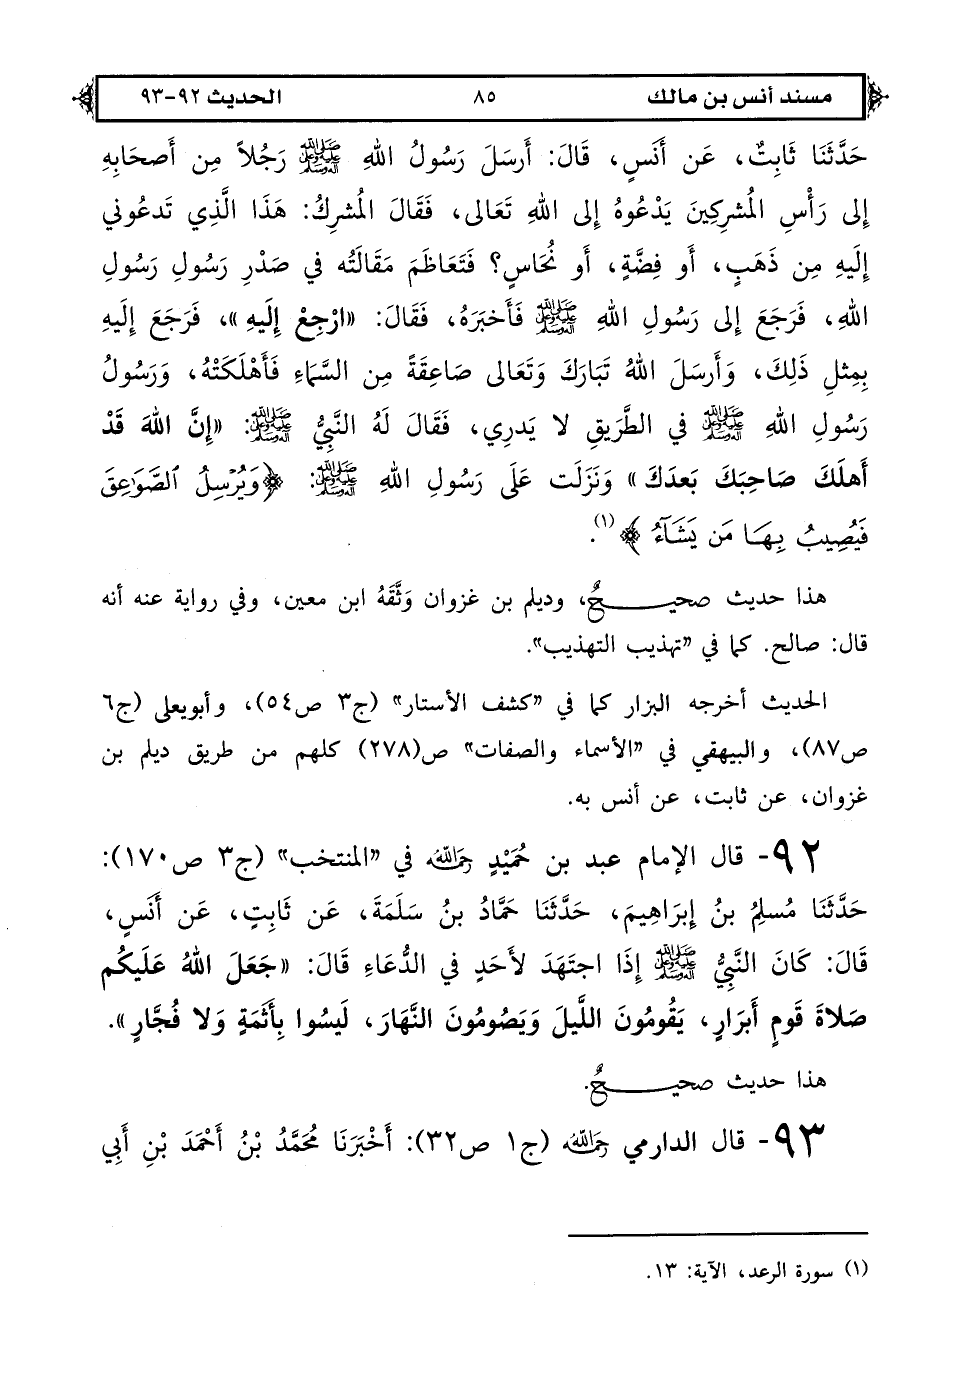 مسند أنس بن مالك ٨٥ الحديث ٩٢-٩٣
حَدَّثَنَا ثَابِتٌ، عَن أَنَسٍ، قَالَ: أَرسَلَ رَسُولُ اللهِ ﷺ رَجُلاً مِن أَصحَابِهِ
إِلى رَأْسِ المُشرِكِينَ يَدْعُوهُ إِلى اللهِ تَعَالى، فَقَالَ المُشرِكُ: هَذَا الَّذِي تَدعُوني
إِلَيهِ مِن ذَهَبٍ، أَو فِضَّةٍ، أَو نُحَاسٍ؟ فَتَعَاظَمَ مَقَالَتُه في صَدْرِ رَسُولِ رَسُولِ
اللهِ، فَرَجَعَ إِلى رَسُولِ اللهِ ﷺ فَأَخبَرَهُ، فَقَالَ: «ارْجِعْ إِلَيهِ»، فَرَجَعَ إِلَيهِ
بِمِثلِ ذَلِكَ، وَأَرسَلَ اللهُ تَبَارَكَ وَتَعَالى صَاعِقَةً مِن السَّمَاءِ فَأَهْلَكَتْهُ، وَرَسُولُ
رَسُولِ اللهِ ﷺ في الطَّرِيقِ لا يَدرِي، فَقَالَ لَهُ النَّبِيُّ ﷺ: «إِنَّ اللهَ قَدْ
أَهلَكَ صَاحِبَكَ بَعدَكَ» وَنَزَلَت عَلَى رَسُولِ اللهِ ﷺ: ﴿وَيُرْسِلُ ٱلصَّوَاعِقَ
فَيُصِيبُ بِهَا مَن يَشَآءُ﴾(١).
هذا حديث صحيـــــحٌ، وديلم بن غزوان وَثَّقَهُ ابن معين، وفي رواية عنه أنه
قال: صالح. كما في «تهذيب التهذيب».
الحديث أخرجه البزار كما في «كشف الأستار» (ج٣ ص٥٤)، وأبويعلى (ج٦
ص٨٧)، والبيهقي في «الأسماء والصفات» ص(٢٧٨) كلهم من طريق ديلم بن
غزوان، عن ثابت، عن أنس به.
٩٢- قال الإمام عبد بن حُمَيْدٍ رَحِمَهُ اللهُ في «المنتخب» (ج٣ ص١٧٠):
حَدَّثَنَا مُسلِمُ بنُ إِبرَاهِيمَ، حَدَّثَنَا حَمَّادُ بنُ سَلَمَةَ، عَن ثَابِتٍ، عَن أَنَسٍ،
قَالَ: كَانَ النَّبِيُّ ﷺ إِذَا اجتَهَدَ لأَحَدٍ في الدُّعَاءِ قَالَ: «جَعَلَ اللهُ عَلَيكُم
صَلاةَ قَومٍ أَبرَارٍ، يَقُومُونَ اللَّيلَ وَيَصُومُونَ النَّهَارَ، لَيسُوا بِأَثَمَةٍ وَلا فُجَّارٍ».
هذا حديث صحيـــــحٌ.
٩٣- قال الدارمي رَحِمَهُ اللهُ (ج١ ص٣٢): أَخْبَرَنَا مُحَمَّدُ بْنُ أَحْمَدَ بْنِ أَبِي
(١) سورة الرعد، الآية: ١٣.